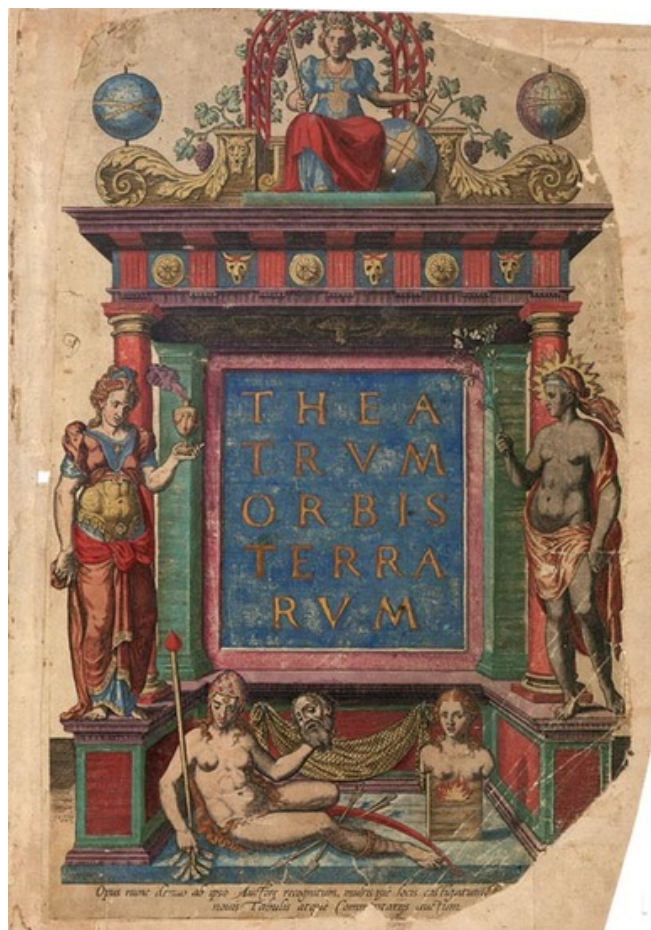 THEA
TRVM
ORBIS
TERRA
RVM
Opus nunc denuo ab ipso Auctore recognitum, multisque locis castigatum,
nouis Tabulis atque Commentarijs auctum.